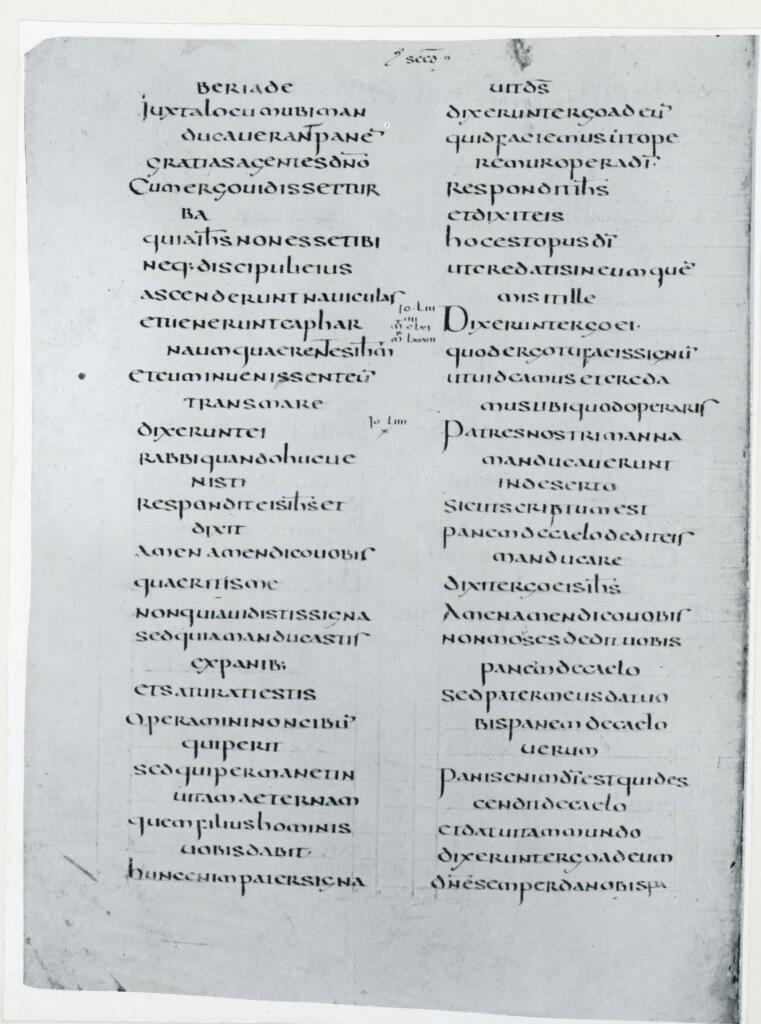 secd
BERIADE
IUXTALOCUMUBIMAN
DUCAUERANTPANĒ
GRATIASAGENTESDN̄O
CUMERGOUIDISSETTUR
BA
QUIAIH̄SNONESSETIBI
NEQ:DISCIPULIEIUS
ASCENDERUNTNAUICULAS
ETUENERUNTCAPHAR
NAUMQUAERENTESIH̄M
ETCUMINUENISSENTEŪ
TRANSMARE
DIXERUNTEI
RABBIQUANDOHUCUE
NISTI
RESPONDITEISIH̄SET
DIXIT
AMENAMENDICOUOBIS
QUAERITISME
NONQUIAUIDISTISSIGNA
SEDQUIAMANDUCASTIS
EXPANIB;
ETSATURATIESTIS
OPERAMININONCIBŪ
QUIPERIT
SEDQUIPERMANETIN
UITAMAETERNAM
QUEMFILIUSHOMINIS
UOBISDABIT
HUNCENIMPATERSIGNA
Io·LIII
Io·LIIII
UITDS̄
DIXERUNTERGOADEŪ
QUIDFACIEMUSUTOPE
REMUROPERADĪ·
RESPONDITIH̄S
ETDIXITEIS
HOCESTOPUSDĪ
UTCREDATISINEUMQUĒ
MISITILLE
DIXERUNTERGOEI·
QUODERGOTUFACISSIGNŪ
UTUIDEAMUSETCREDA
MUSTIBIQUODOPERARIS
PATRESNOSTRIMANNA
MANDUCAUERUNT
INDESERTO
SICUTSCRIPTUMEST
PANEMDECAELODEDITEIS
MANDUCARE
DIXITERGOEISIH̄S
AMENAMENDICOUOBIS
NONMOSESDEDITUOBIS
PANEMDECAELO
SEDPATERMEUSDATUO
BISPANEMDECAELO
UERUM
PANISENIMDĪESTQUIDES
CENDITDECAELO
ETDATUITAMMUNDO
DIXERUNTERGOADEUM
DN̄ESEMPERDANOBISPA